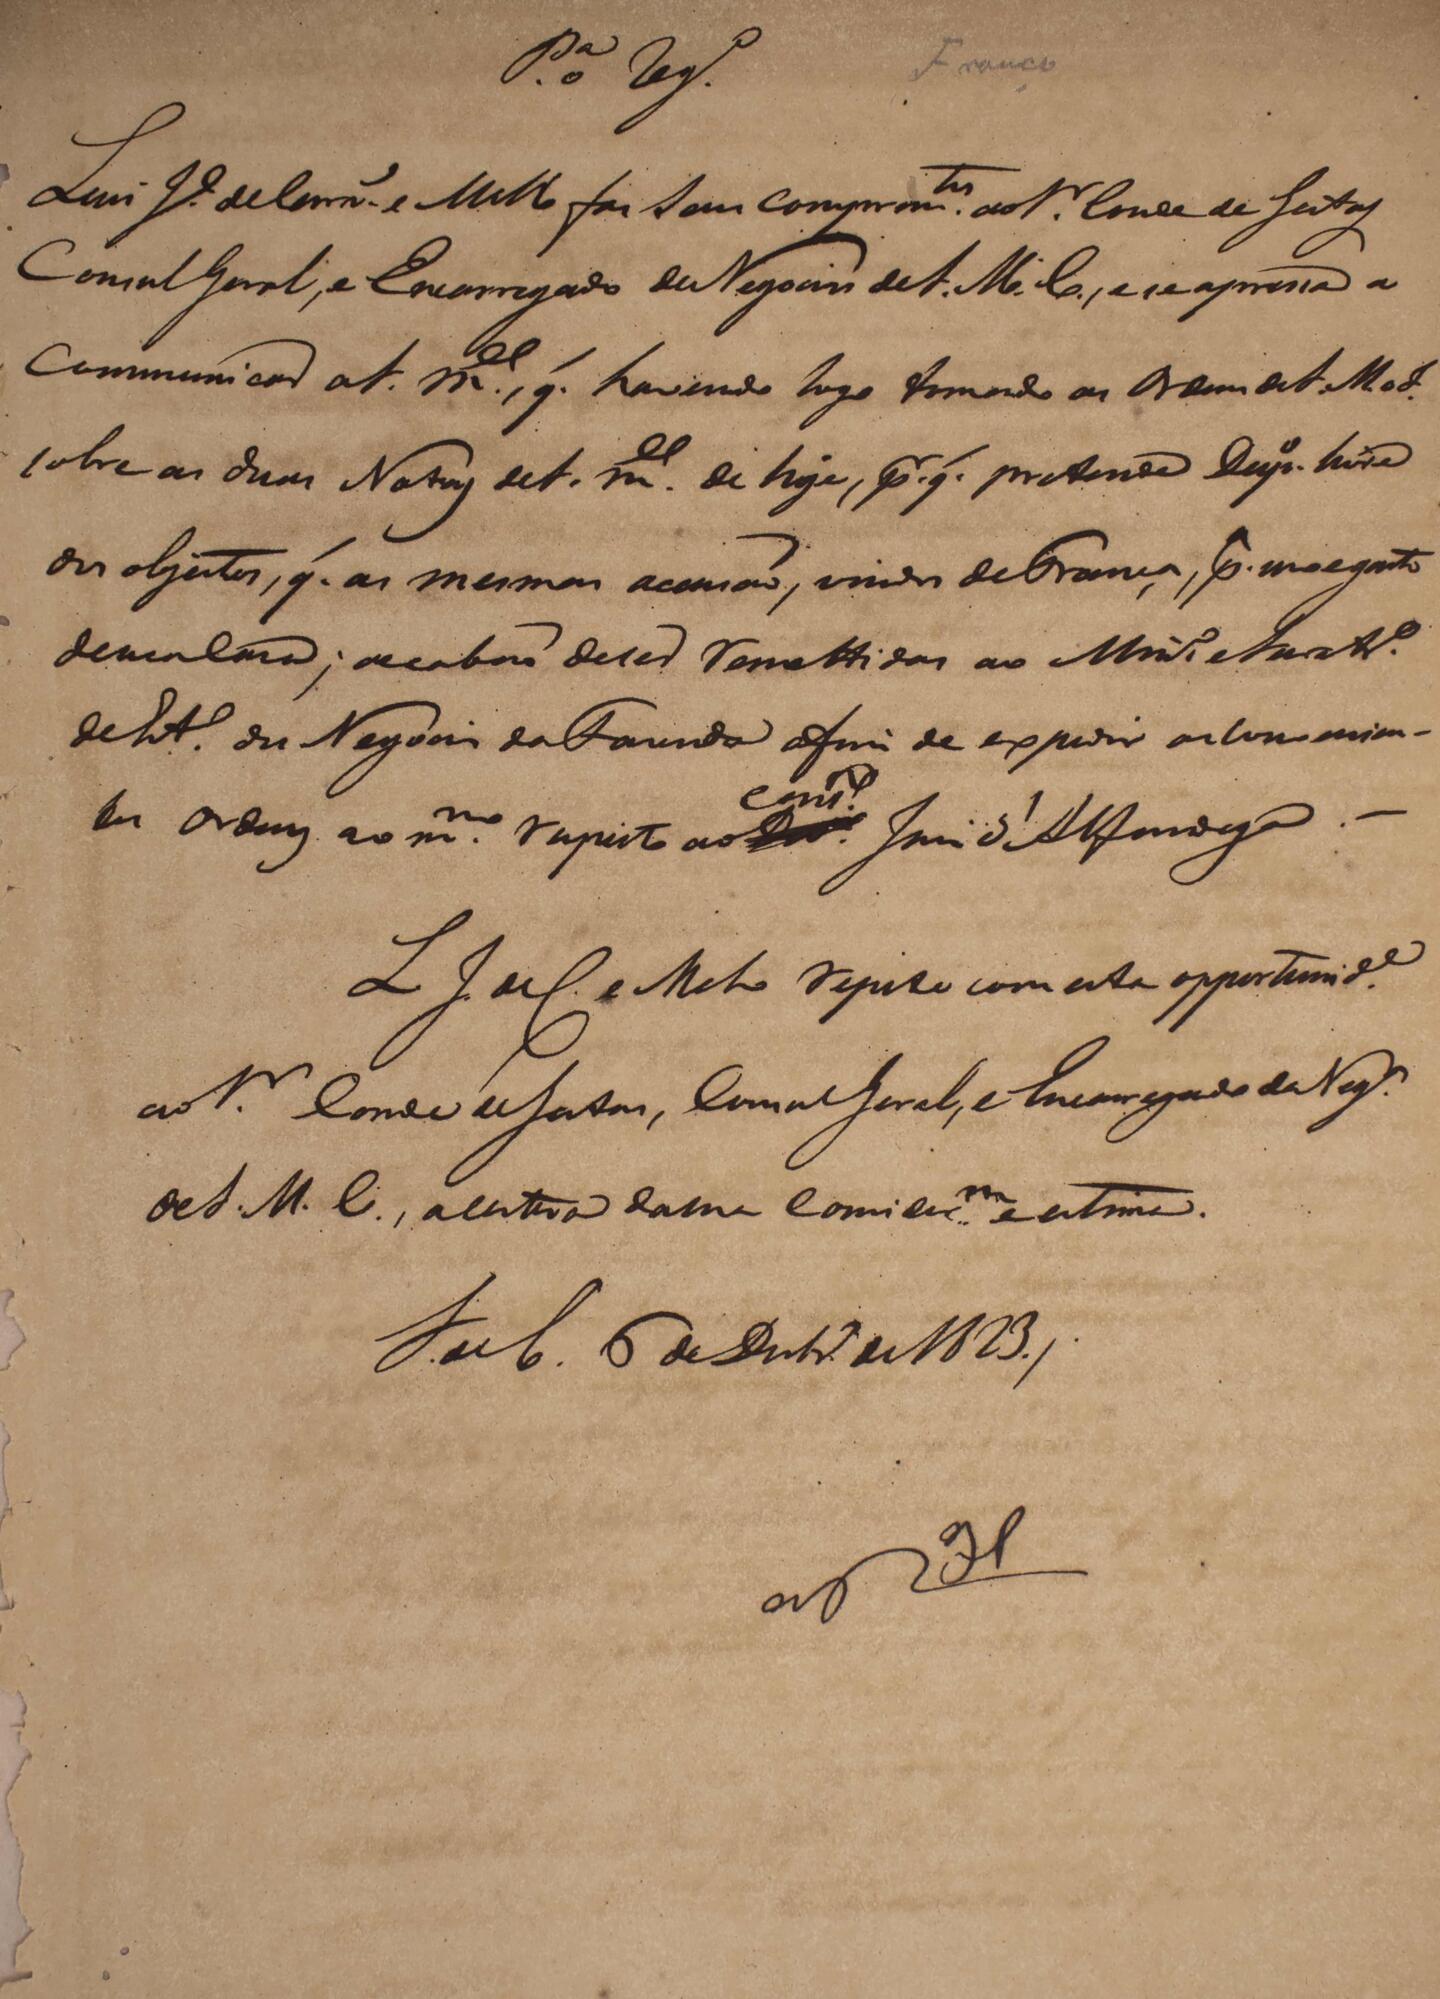 P.ª o Reg.º França
Luis J.é de Carv.º e Mello faz seus comprim.tos ao S.r Conde de Gestas
Consul Geral, e Encarregado de Negocios de S. M. C., e se apressa a
communicar a S. m.ce, q. havendo logo tomado as Ordens de S. M. o I.
sobre as duas Notas de S. m.ce de hoje, p.r q. pretende Desp.º livre
dos objectos, q. as mesmas accusão, vindos de França, p.ª uso e gasto
de sua Casa; acabão de ser remettidas ao Min.º e Secret.º
de Est.º dos Negocios da Fazenda afim de expedir as convenien-
tes Ordens ao m.mo respeito ao Cons.º Juiz d'Alfandega. —
L J. de C. e Mello repete com esta opportunid.e
ao S.r Conde de Gestas, Consul Geral, e Encarregado de Neg.s
de S. M. C., a certeza da sua consider.m e estima.
P. de C. 6 de Dezbr.º de 1823.